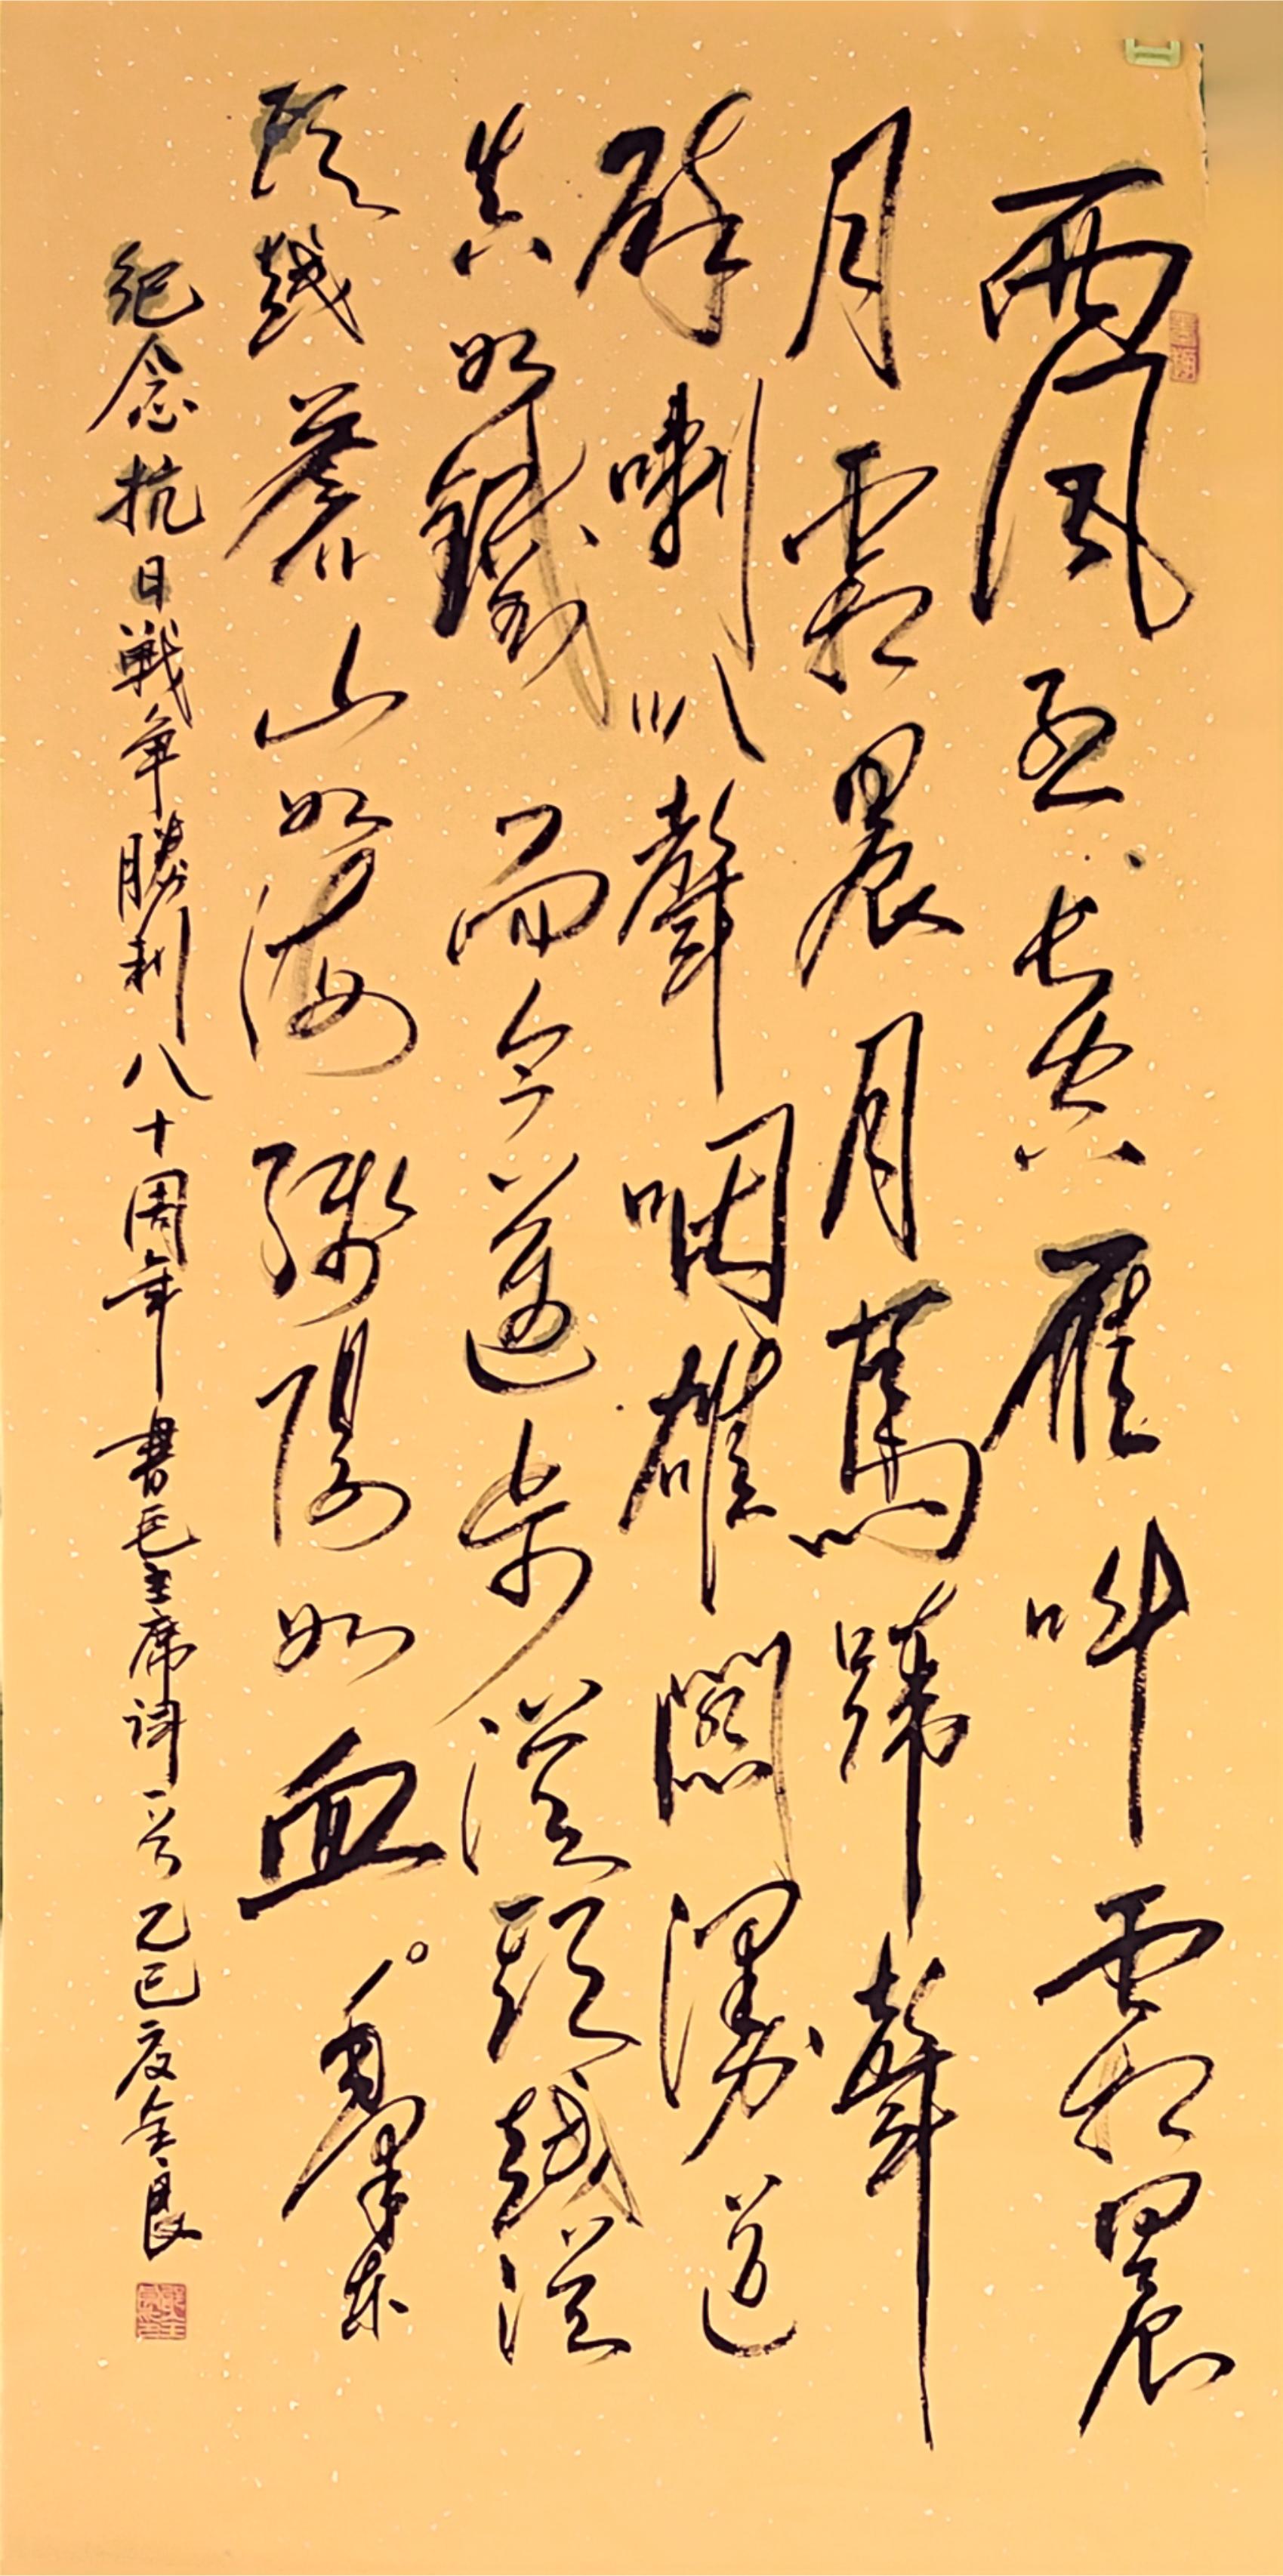 西風烈長空雁叫霜晨
月霜晨月馬蹄聲
碎喇叭聲咽雄關漫道
真如鐵而今邁步從頭越從
頭越蒼山如海殘陽如血。毛澤东
纪念抗日戰争勝利八十周年書毛主席词一首乙巳夏金良